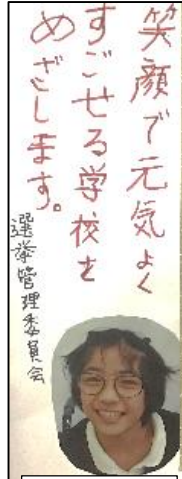 笑顔で元気よく
すごせる学校を
めざします。
選挙管理委員会